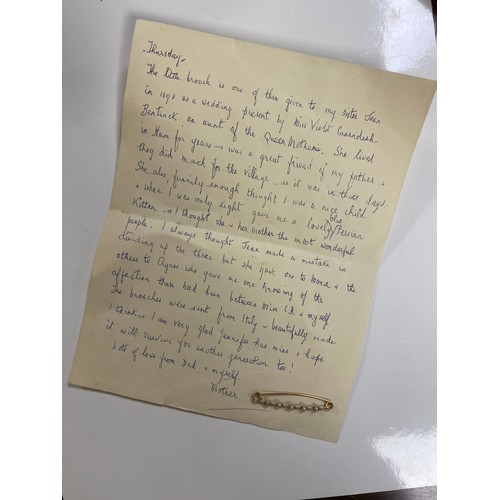 Thursday.
The little brooch is one of three given to my sister Jean
in 1898 as a wedding present by Miss Violet Cavendish-
Bentinck, an aunt of the Queen Mother's. She lived
in Ham for years & was a great friend of my father &
they did much for the village - as it was in those days
She also, funnily enough thought I was a nice child
& when I was only eight gave me a lovely blue Persian
Kitten, & I thought she & her mother the most wonderful
people. I always thought Jean made a mistake in
dividing up the three but she gave one to Nora & the
others to Agnes who gave me one knowing of the
affection there had been between Miss C.B. & myself
The brooches were sent from Italy - beautifully made
I think. I am very glad Jennifer has mine & hope
it will survive for another generation too!
Lots of love from Dad & myself.
Mother